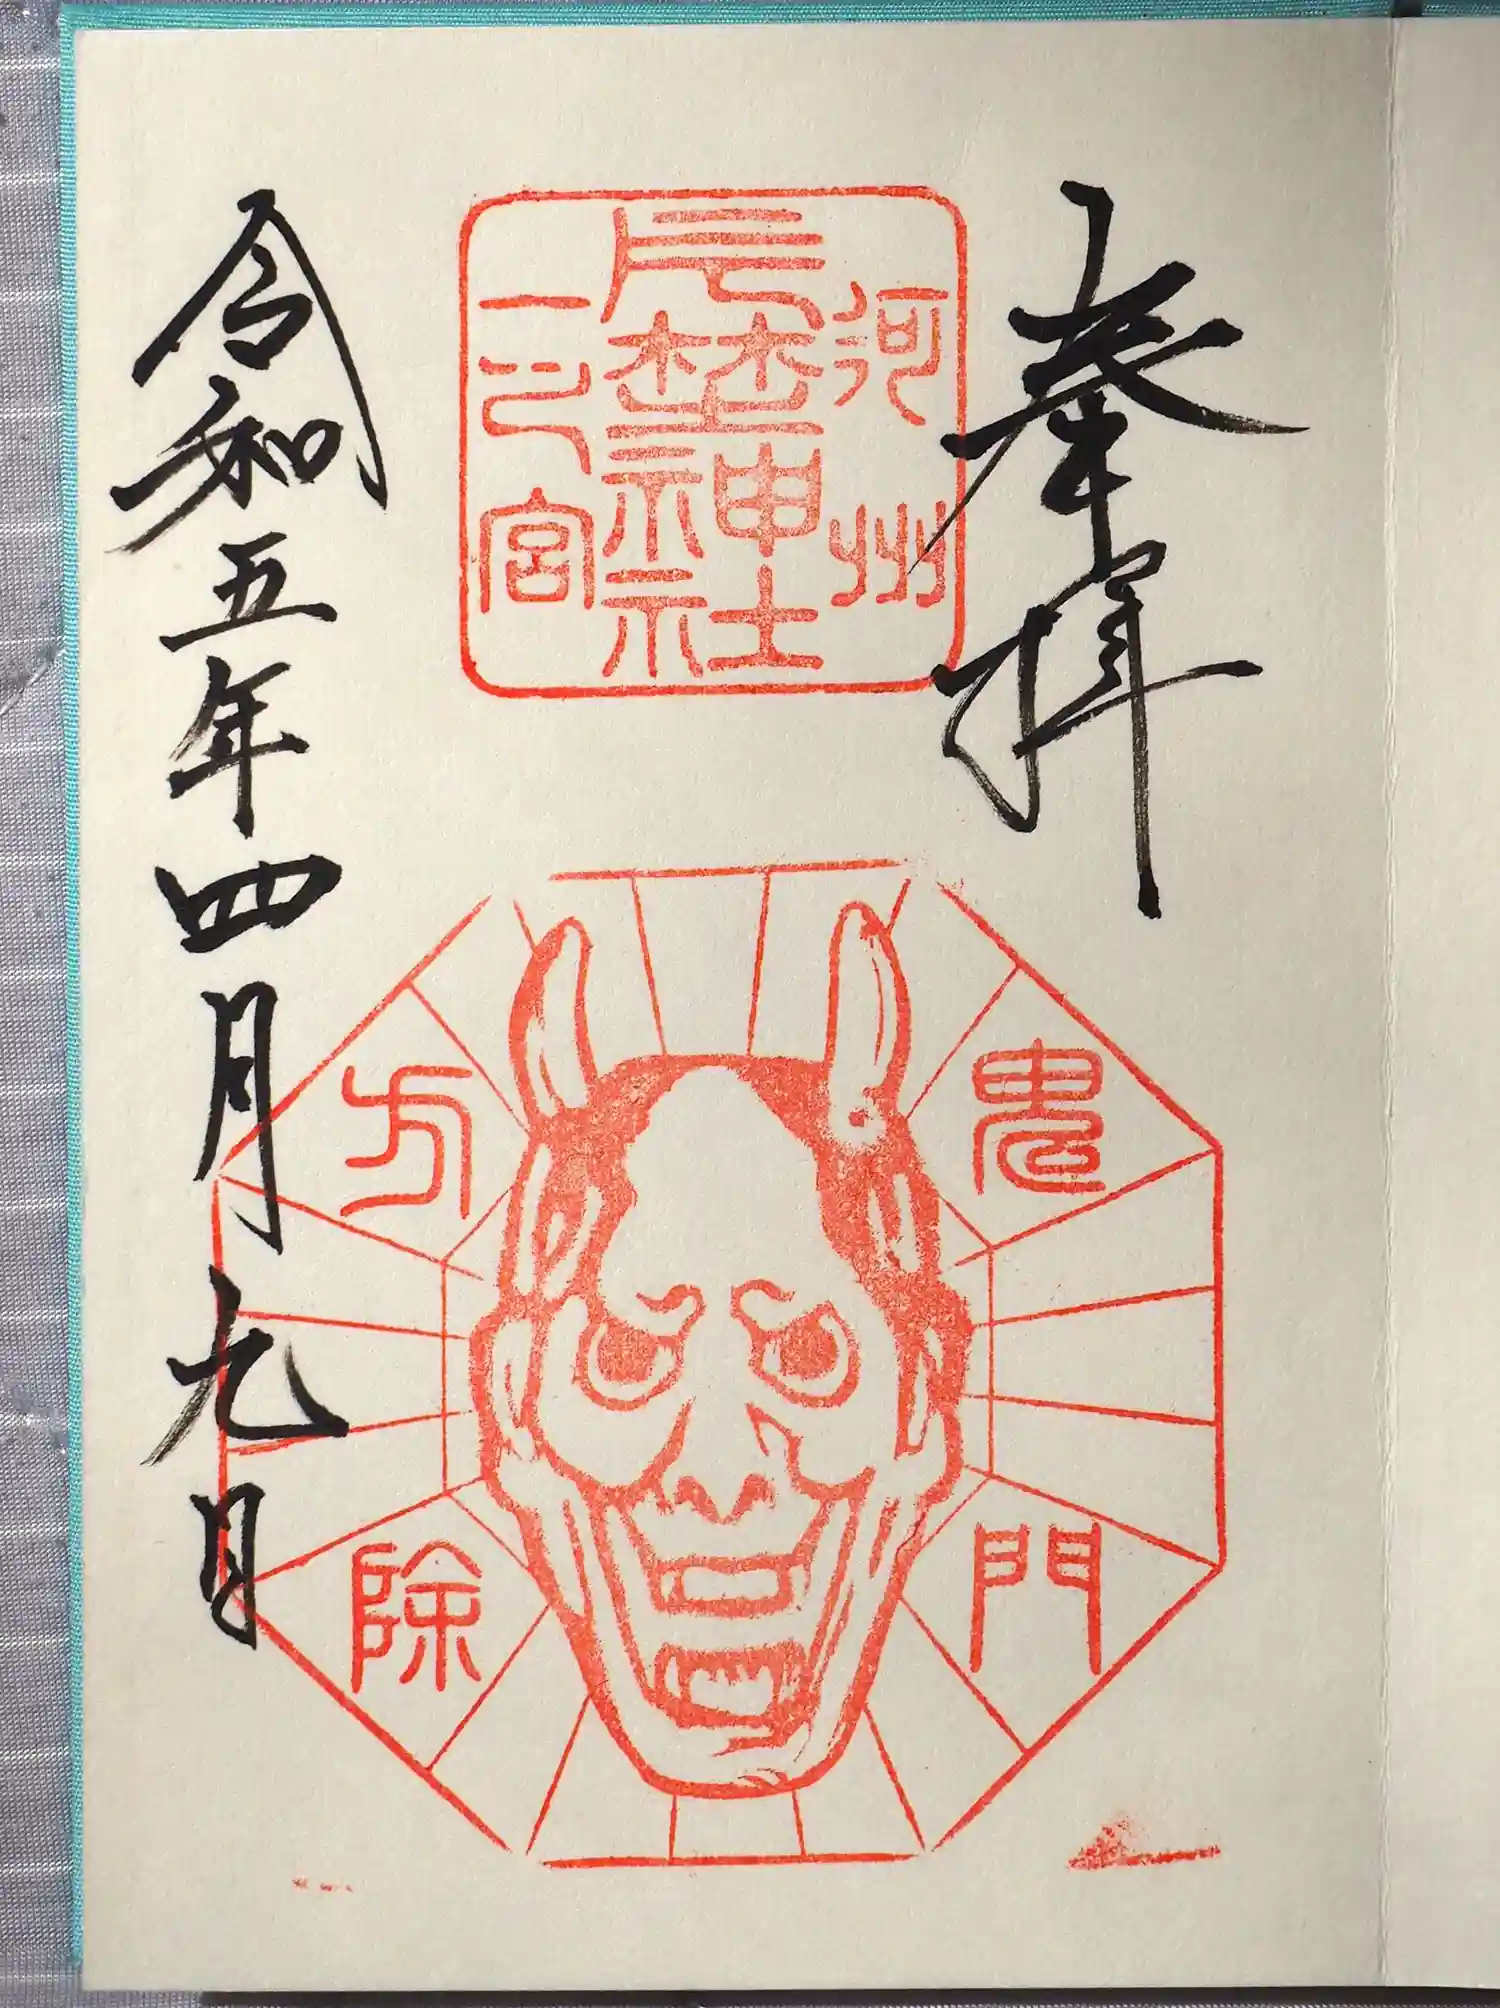 奉拝
河州
片埜神社
一之宮
鬼門
方除
令和五年四月九日